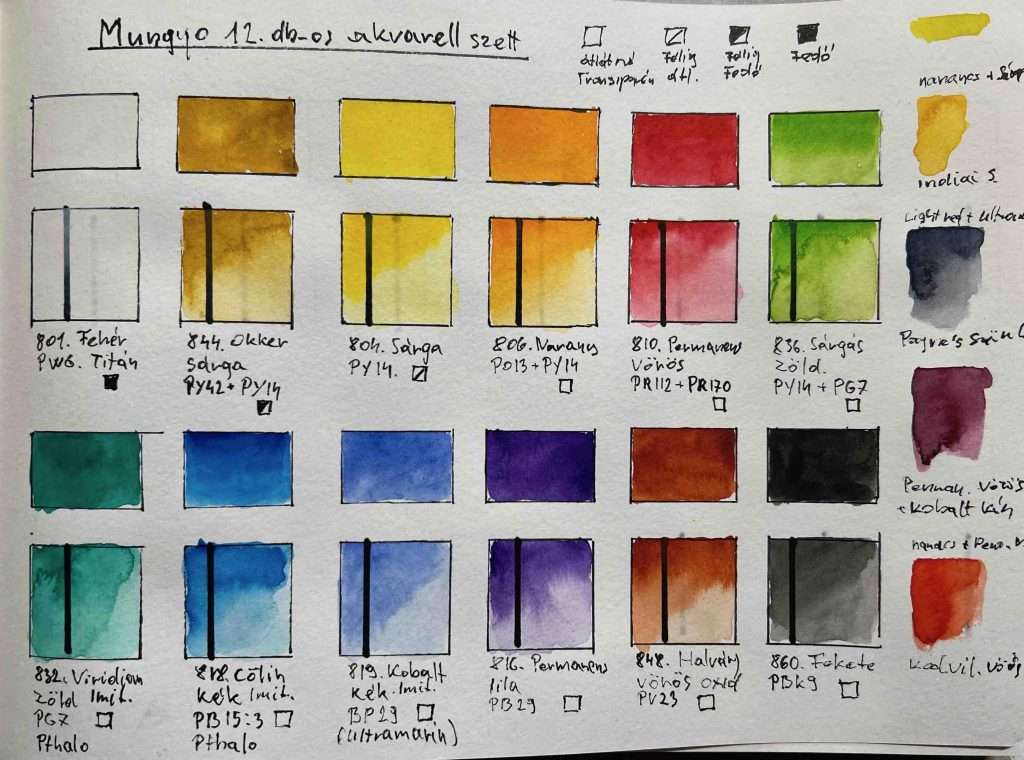 Mungyo 12. db-os akvarell szett
átlátszó
Transzparen
Félig
átl.
Félig
Fedő
Fedő
narancs +
indiai S
Light red + ultrama
Payne's Szürk
Perman. Vörös
+ Kobalt kék
narancs + Perm. V
Kadm. vörös
801. Fehér
PW6. Titán
844. Okker
sárga
PY42 + PY14
804. Sárga
PY14.
806. Narancs
PO13 + PY14
810. Permanens
Vörös
PR112 + PR170
836. Sárgás
Zöld.
PY14 + PG7
832. Viridian
Zöld Imit.
PG7
Pthalo
818. Cölin
kék Imit.
PB15:3
Pthalo
819. Kobalt
kék. Imit.
BP29
(Ultramarin)
816. Permanens
lila
PB29
848. Halvány
vörös oxid
PV23
860. Fekete
PBk9